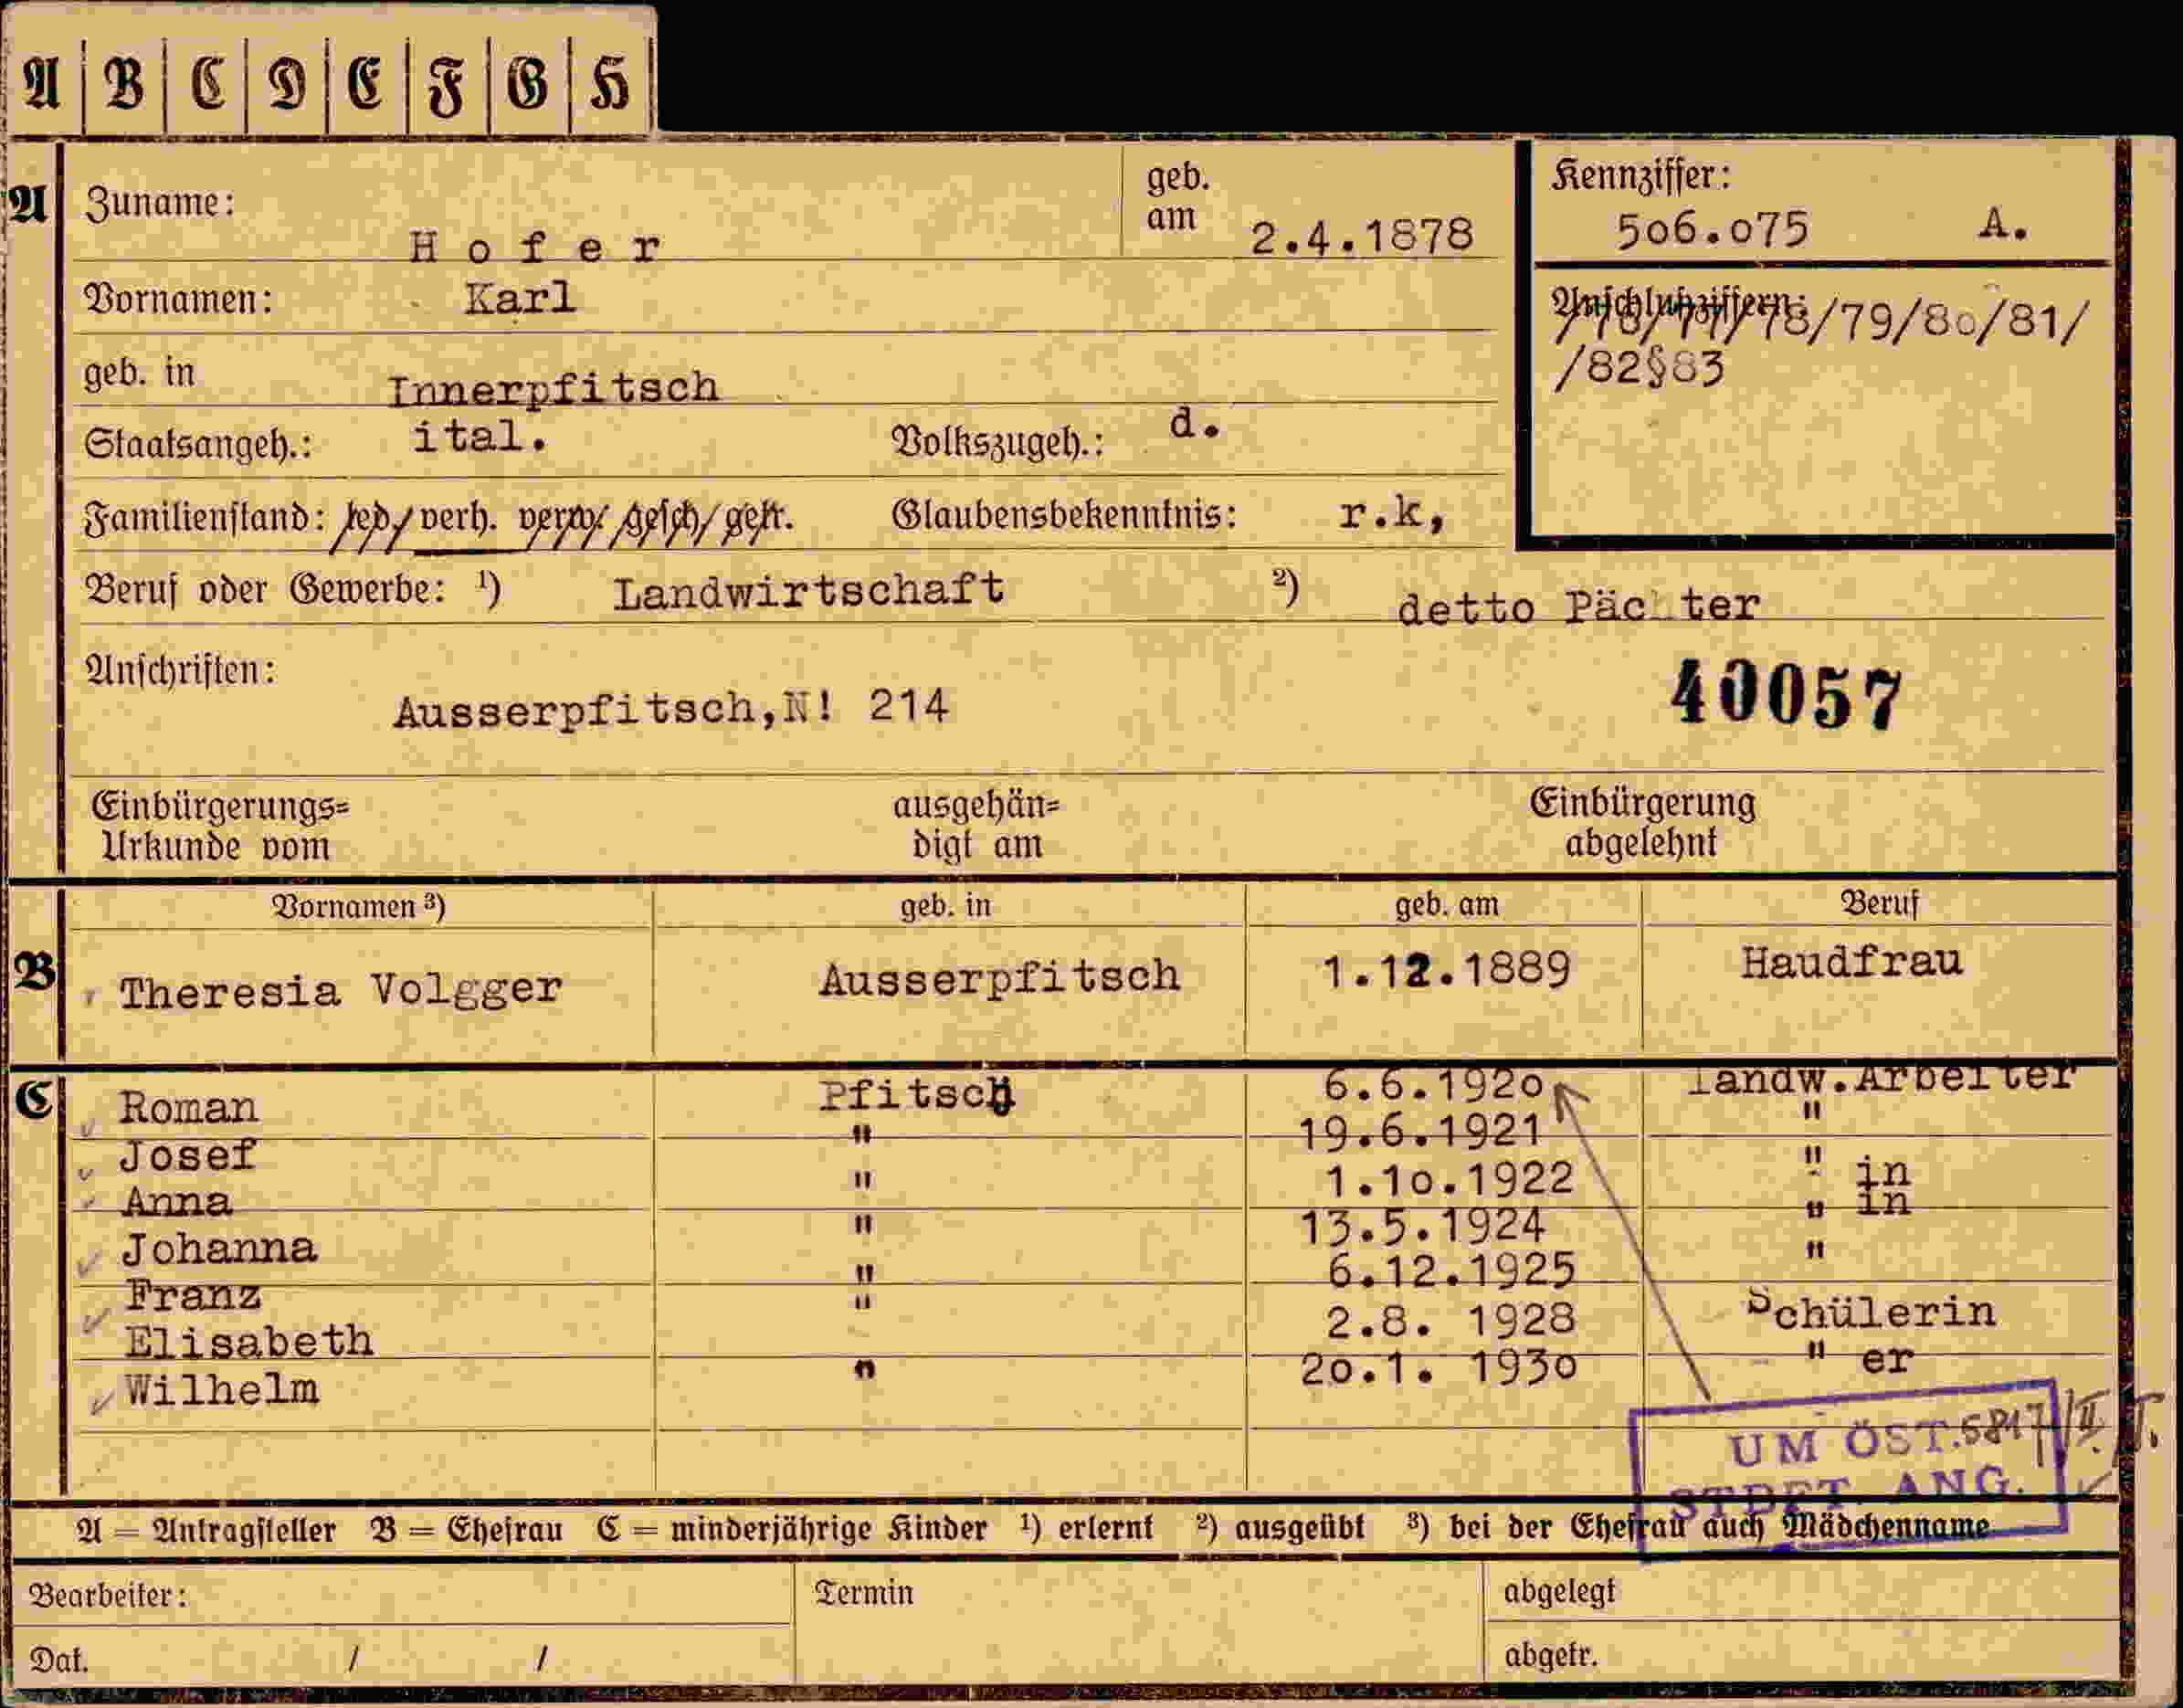 A B C D E F G H
A Zuname: H o f e r geb. am 2.4.1878
Kennziffer: 506.075 A.
Vornamen: Karl
Anschlußziffern: /76/77/78/79/80/81/
/82§83
geb. in Innerpfitsch
Staatsangeh.: ital. Volkszugeh.: d.
Familienstand: led. verh. verw. gesch. getr. Glaubensbekenntnis: r.k,
Beruf oder Gewerbe: ¹) Landwirtschaft ²) detto Pächter
Anschriften: Ausserpfitsch,N! 214
40057
Einbürgerungs=
Urkunde vom
ausgehän=
digt am
Einbürgerung
abgelehnt
Vornamen ³) geb. in geb. am Beruf
B Theresia Volgger Ausserpfitsch 1.12.1889 Haudfrau
C Roman Pfitsch 6.6.1920 landw.Arbeiter
Josef " 19.6.1921 "
Anna " 1.10.1922 " in
Johanna " 13.5.1924 " in
Franz " 6.12.1925 "
Elisabeth " 2.8. 1928 Schülerin
Wilhelm " 20.1. 1930 " er
UM ÖST. 5817/II
ANG.
A = Antragsteller B = Ehefrau C = minderjährige Kinder ¹) erlernt ²) ausgeübt ³) bei der Ehefrau auch Mädchenname
Bearbeiter: Termin abgelegt
Dat. / / abgetr.